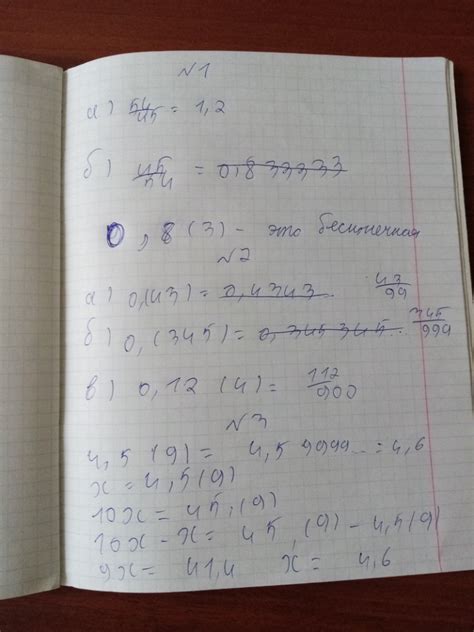 №1
а) 54/45 = 1,2
б) 45/54 = 0,833333
0,8(3) - это бесконечная
№2
а) 0,(43) = 0,4343... 43/99
б) 0,(345) = 0,345345... 345/999
в) 0,12(4) = 112/900
№3
4,5(9) = 4,59999... = 4,6
x = 4,5(9)
10x = 45,(9)
10x - x = 45,(9) - 4,5(9)
9x = 41,4 x = 4,6